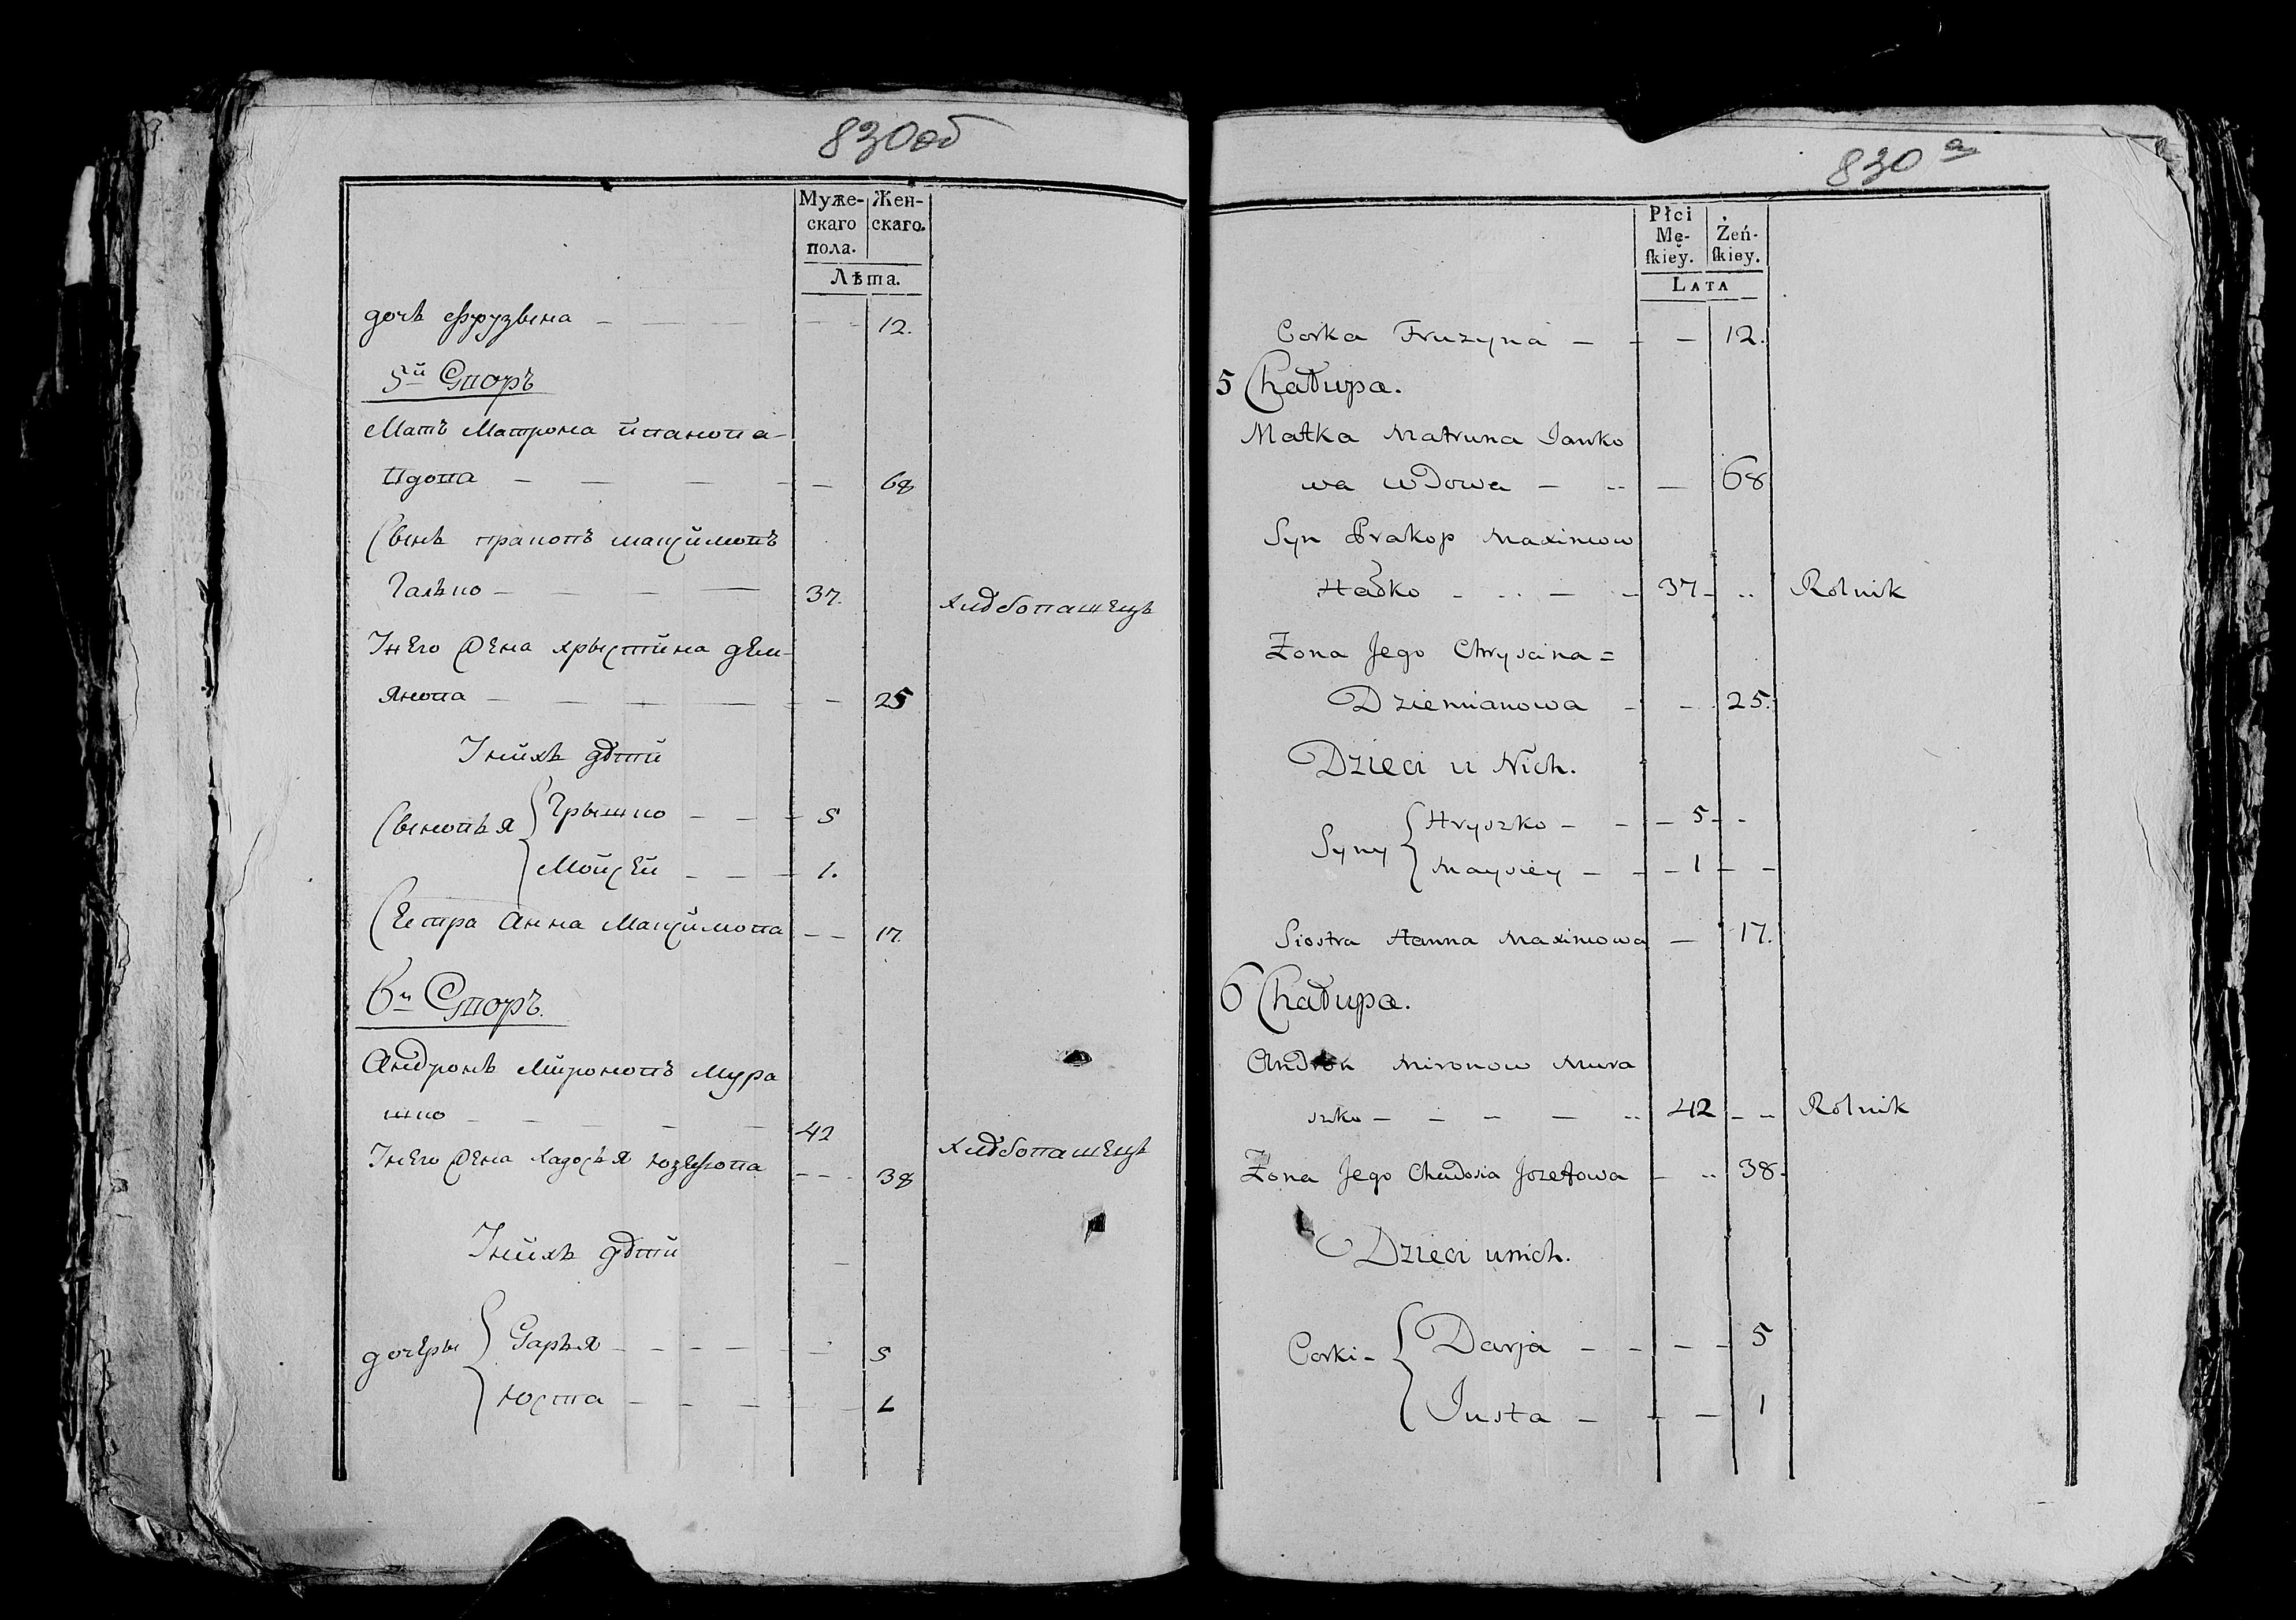 830об
Муже-
скаго
пола.
Жен-
скаго.
Лѣта.
дочь Фрузына — — — — — 12.
5й Дворъ
Мать Матрона Иванова
Вдова — — — — — 68
Сынъ Пракопъ Максимовъ
Галько — — — — 37. Хлѣбопашецъ
У него Жена Хрыстина Дем-
янова — — — — — 25
У нихъ дѣти
Сыновья { Грышко — — — 5
Мойсей — — — 1.
Сестра Анна Максимова — — 17.
6й Дворъ.
Андронъ Мироновъ Мура
шко — — — — 42 Хлѣбопашецъ
У него Жена Хадосья Юзефова — — 38
У нихъ дѣти
дочеры { Дарья — — — — — 5
Юста — — — — — 1
830 а
Płci
Mę-
ſkiey.
Żeń-
ſkiey.
Lata
Corka Fruzyna — — — 12.
5 Chałupa.
Matka Matruna Janko
wa wdowa — — — 68
Syn Prakop Maximow
Hałko — — — — 37 — Rolnik
Żona Jego Chryscina =
Dziemianowa — — 25.
Dzieci u Nich.
Syny { Hryszko — — — 5 — —
Maysiey — — — 1 — —
Siostra Hanna Maximowa — 17.
6 Chałupa.
Andron Mironow Mura
szko — — — — — 42 — — Rolnik
Żona Jego Chudosia Jozefowa — — 38.
Dzieci u nich.
Corki — { Darja — — — — 5
Justa — — — 1